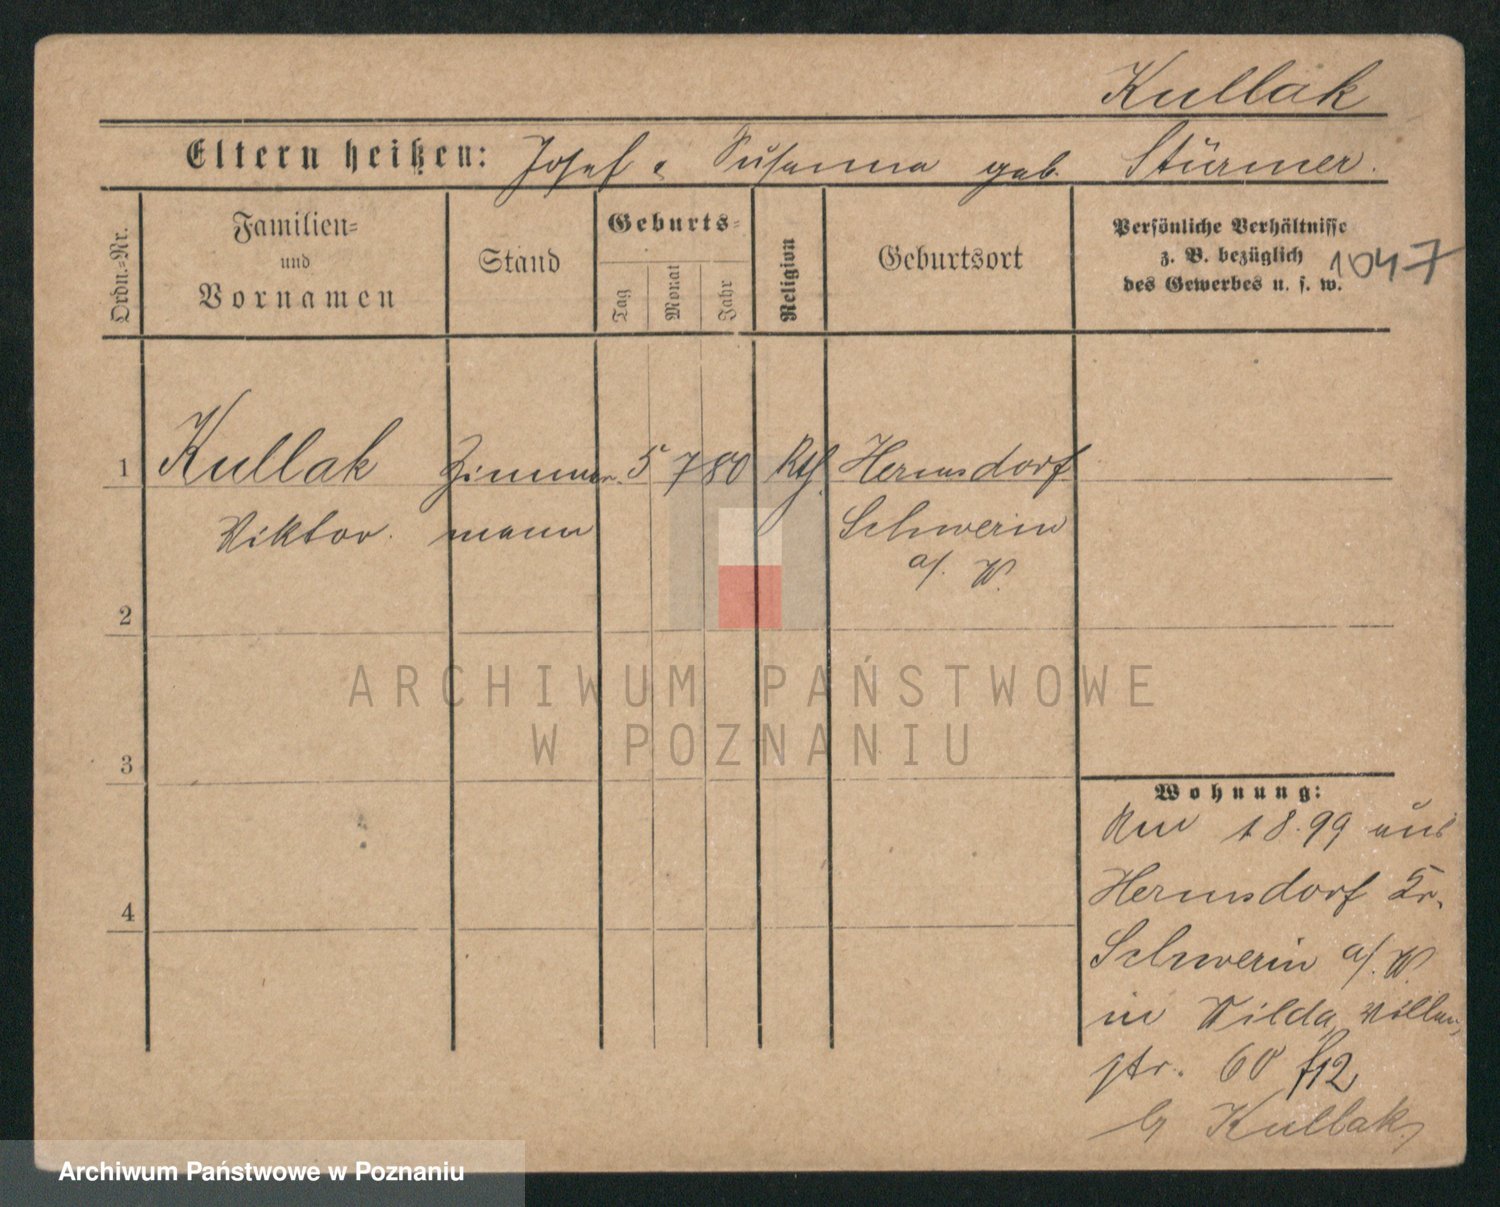 Kullak
Eltern heißen: Josef u. Susanna geb. Stürmer.
Ordn.-Nr.
Familien-
und
Vornamen
Stand
Geburts-
Tag
Monat
Jahr
Religion
Geburtsort
Persönliche Verhältnisse
z. B. bezüglich
des Gewerbes u. s. w.
1047
1 Kullak Zimmer- 5 7 80 Kth. Hermsdorf
Viktor. mann Schwerin
a/. W.
2
3
4
ARCHIWUM PAŃSTWOWE
W POZNANIU
Wohnung:
Am 1 8. 99 aus
Hermsdorf Kr.
Schwerin a/. W.
in Wilda,
str. 60 f12
b/ Kullak
Archiwum Państwowe w Poznaniu